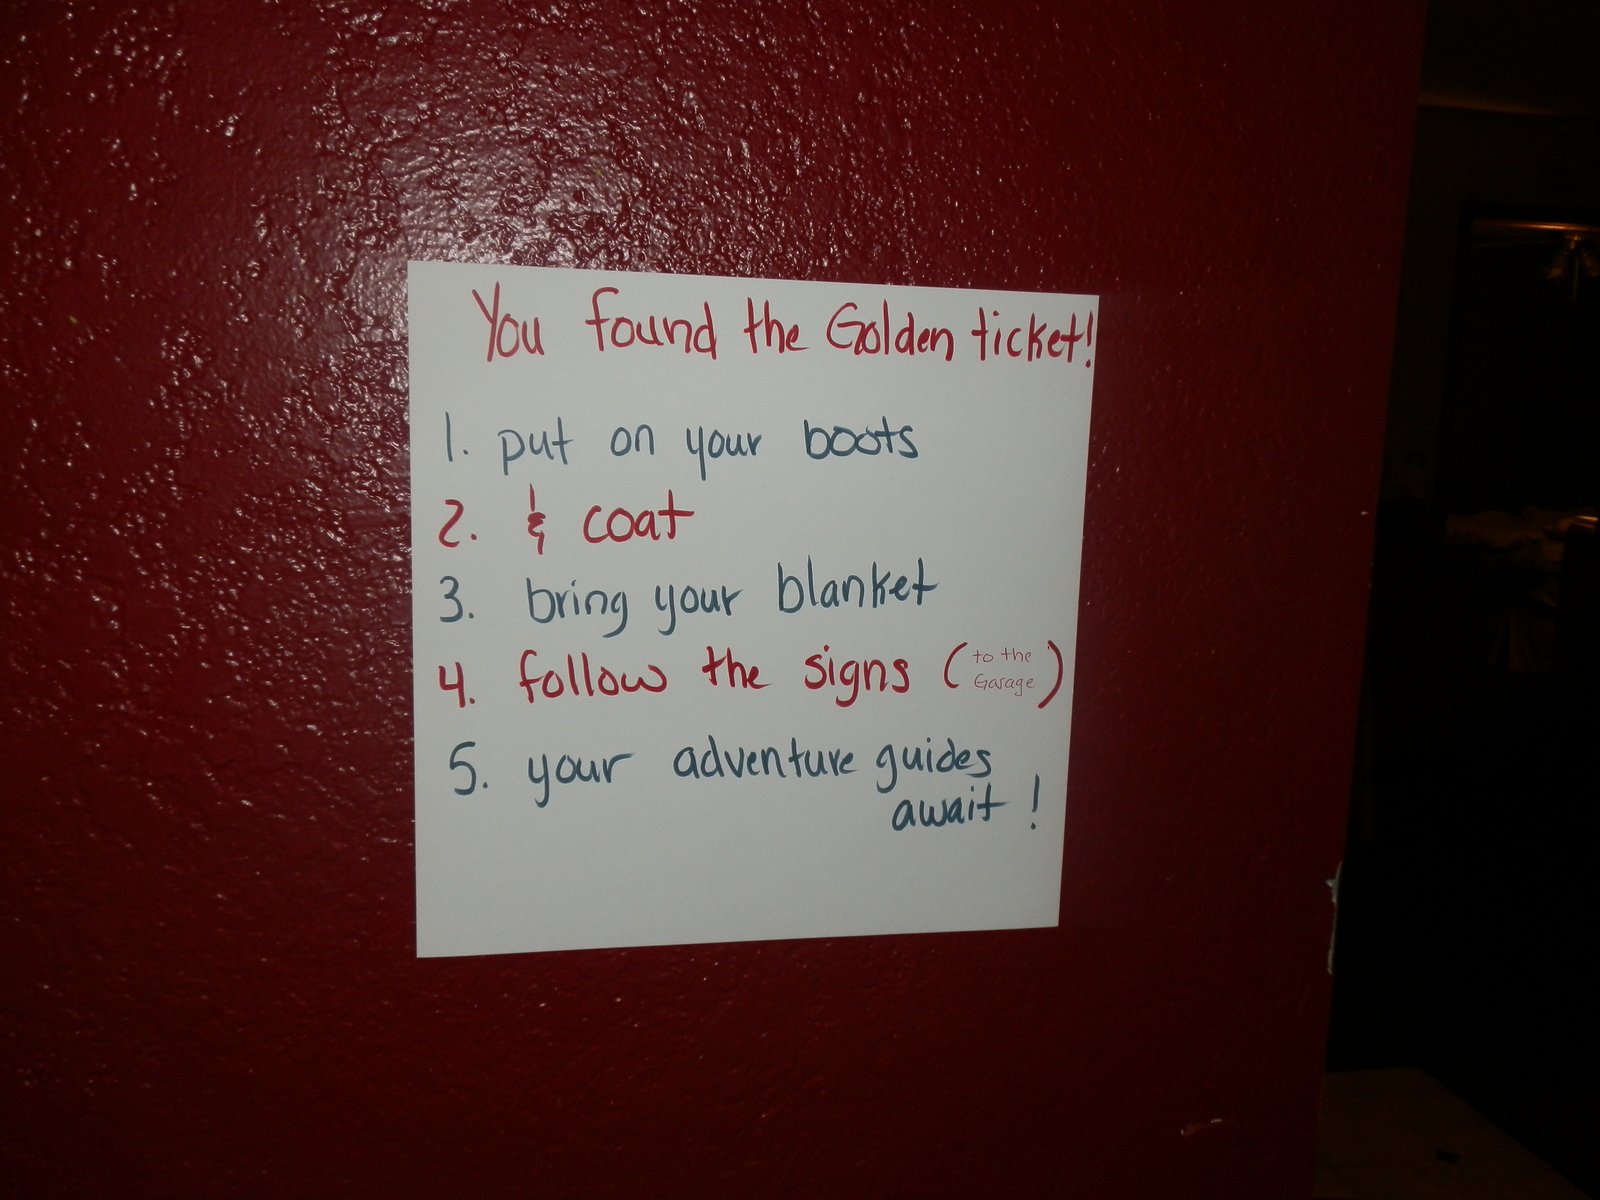 You found the Golden ticket!
1. put on your boots
2. & coat
3. bring your blanket
4. follow the signs (to the
Garage)
5. your adventure guides
await!